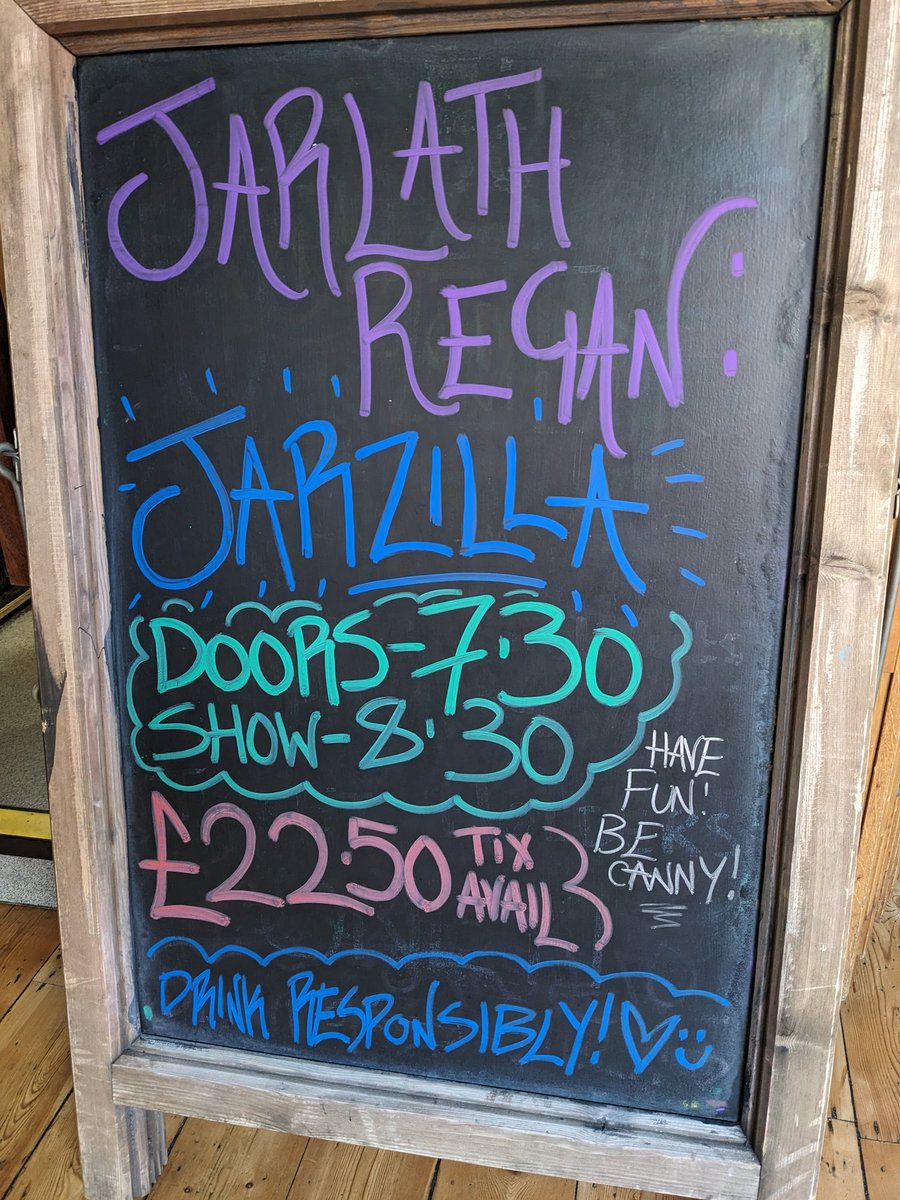 JARLATH
REGAN:
JARZILLA
DOORS-7·30
SHOW-8·30
£22·50 TIX
AVAIL
HAVE
FUN!
BE
CANNY!
DRINK RESPONSIBLY!